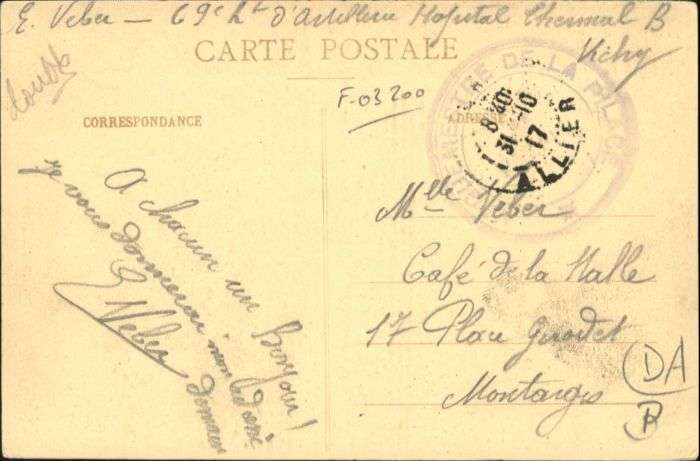 E. Veber — 69e Rt d'Artillerie Hopital Thermal B
Vichy
CARTE POSTALE
double
F-03200
CORRESPONDANCE
ADRESSE
COMMERCE DE LA PLACE
8 40
31-10
17
ALLIER
A chacun un Bonjour!
je vous donnerai mon
demain
E Veber
Mlle Veber
Café de la Halle
17 Place Girodet
Montargis
DA
B